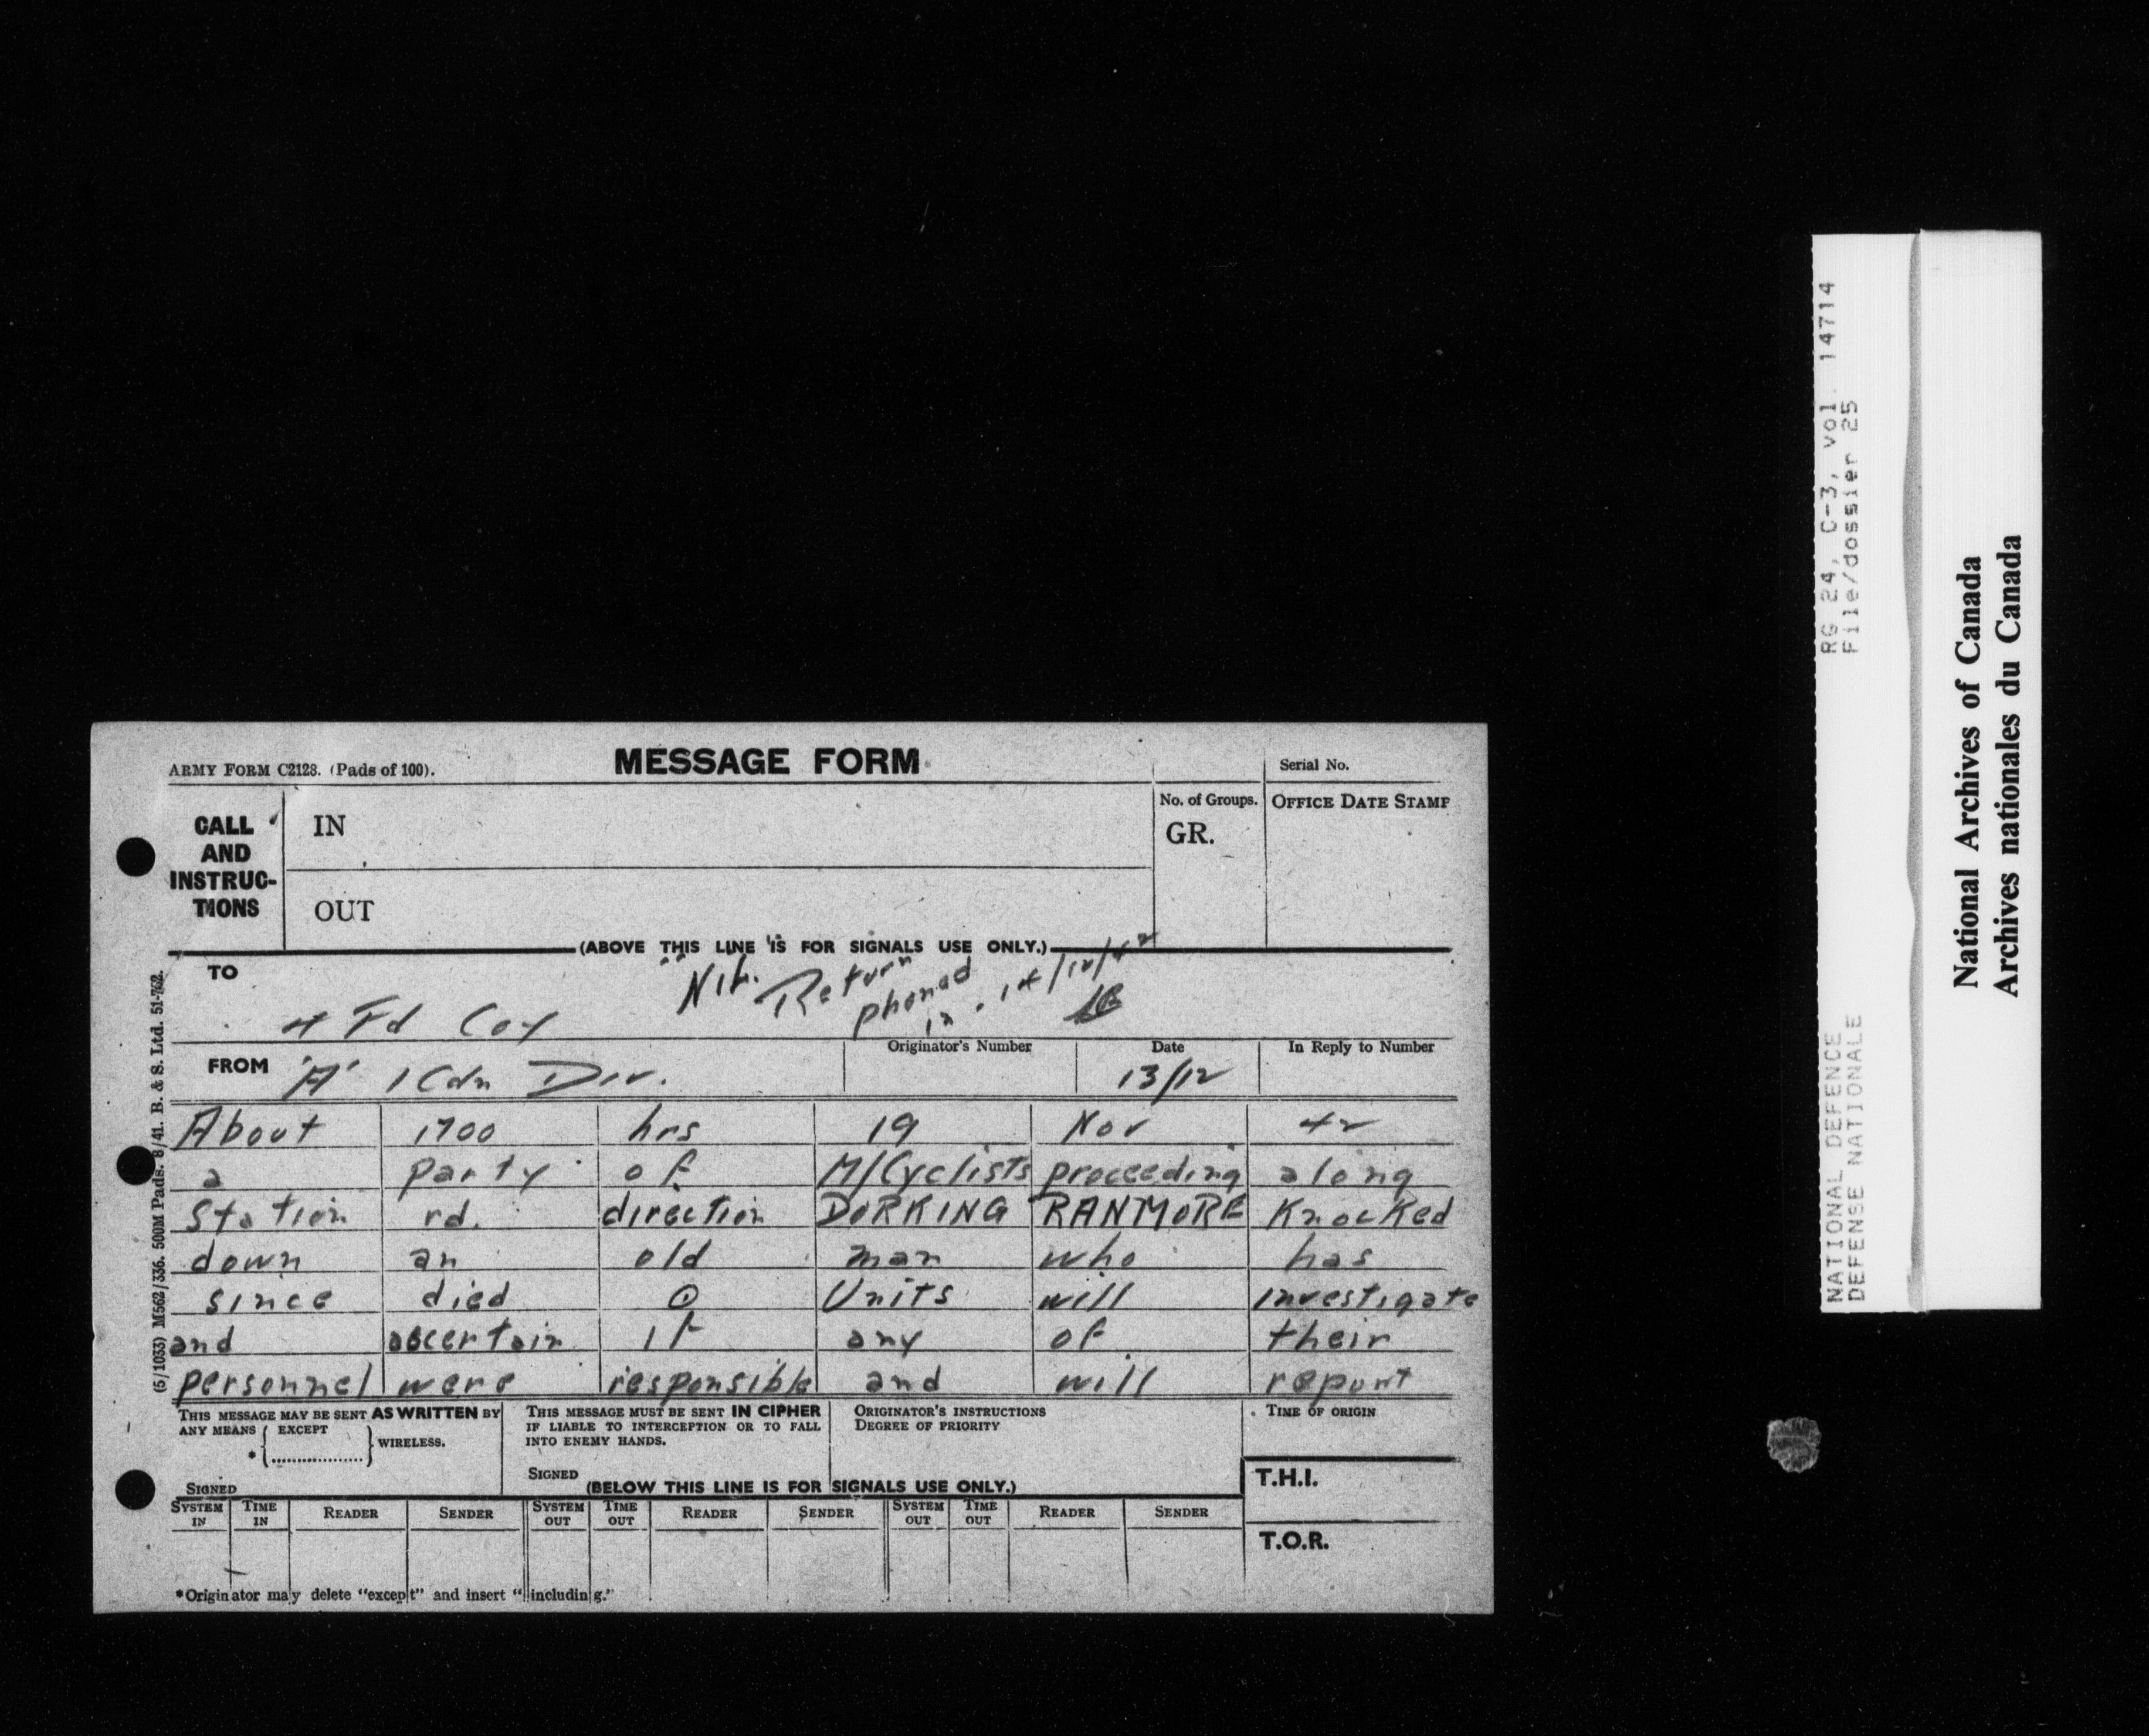 ARMY FORM C2128. (Pads of 100).
MESSAGE FORM
Serial No.
CALL AND INSTRUC-TIONS
IN
OUT
No. of Groups.
GR.
OFFICE DATE STAMP
(ABOVE THIS LINE IS FOR SIGNALS USE ONLY.)
TO
4 Fd Coy
Nil. Return phoned in. 14/12/42
FROM
'A' 1 Cdn Div.
Originator's Number
Date
13/12
In Reply to Number
About 1700 hrs 19 Nov 42
a party of M/Cyclists proceeding along
Station rd. direction DORKING RANMORE Knocked
down an old man who has
since died ⊙ Units will investigate
and ascertain if any of their
personnel were responsible and will report
THIS MESSAGE MAY BE SENT AS WRITTEN BY
ANY MEANS { EXCEPT
* .................. } WIRELESS.
SIGNED
THIS MESSAGE MUST BE SENT IN CIPHER
IF LIABLE TO INTERCEPTION OR TO FALL
INTO ENEMY HANDS.
SIGNED
ORIGINATOR'S INSTRUCTIONS
DEGREE OF PRIORITY
TIME OF ORIGIN
T.H.I.
T.O.R.
(BELOW THIS LINE IS FOR SIGNALS USE ONLY.)
SYSTEM IN TIME IN READER SENDER SYSTEM OUT TIME OUT READER SENDER SYSTEM OUT TIME OUT READER SENDER
*Originator may delete "except" and insert "including."
(5/1033) M562/336. 500M Pads. 8/41. B. & S. Ltd. 51-762.
RG 24, C-3, vol. 14714
File/dossier 25
NATIONAL DEFENCE
DEFENSE NATIONALE
National Archives of Canada
Archives nationales du Canada